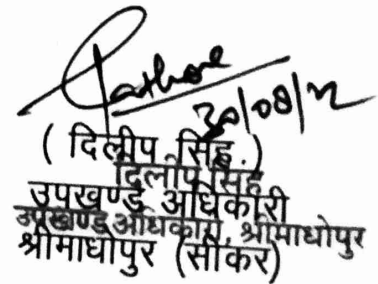 Rathore
30/08/22
( दिलीप सिंह )
दिलीप सिंह
उपखण्ड अधिकारी
उपखण्ड अधिकारी, श्रीमाधोपुर
श्रीमाधोपुर (सीकर)